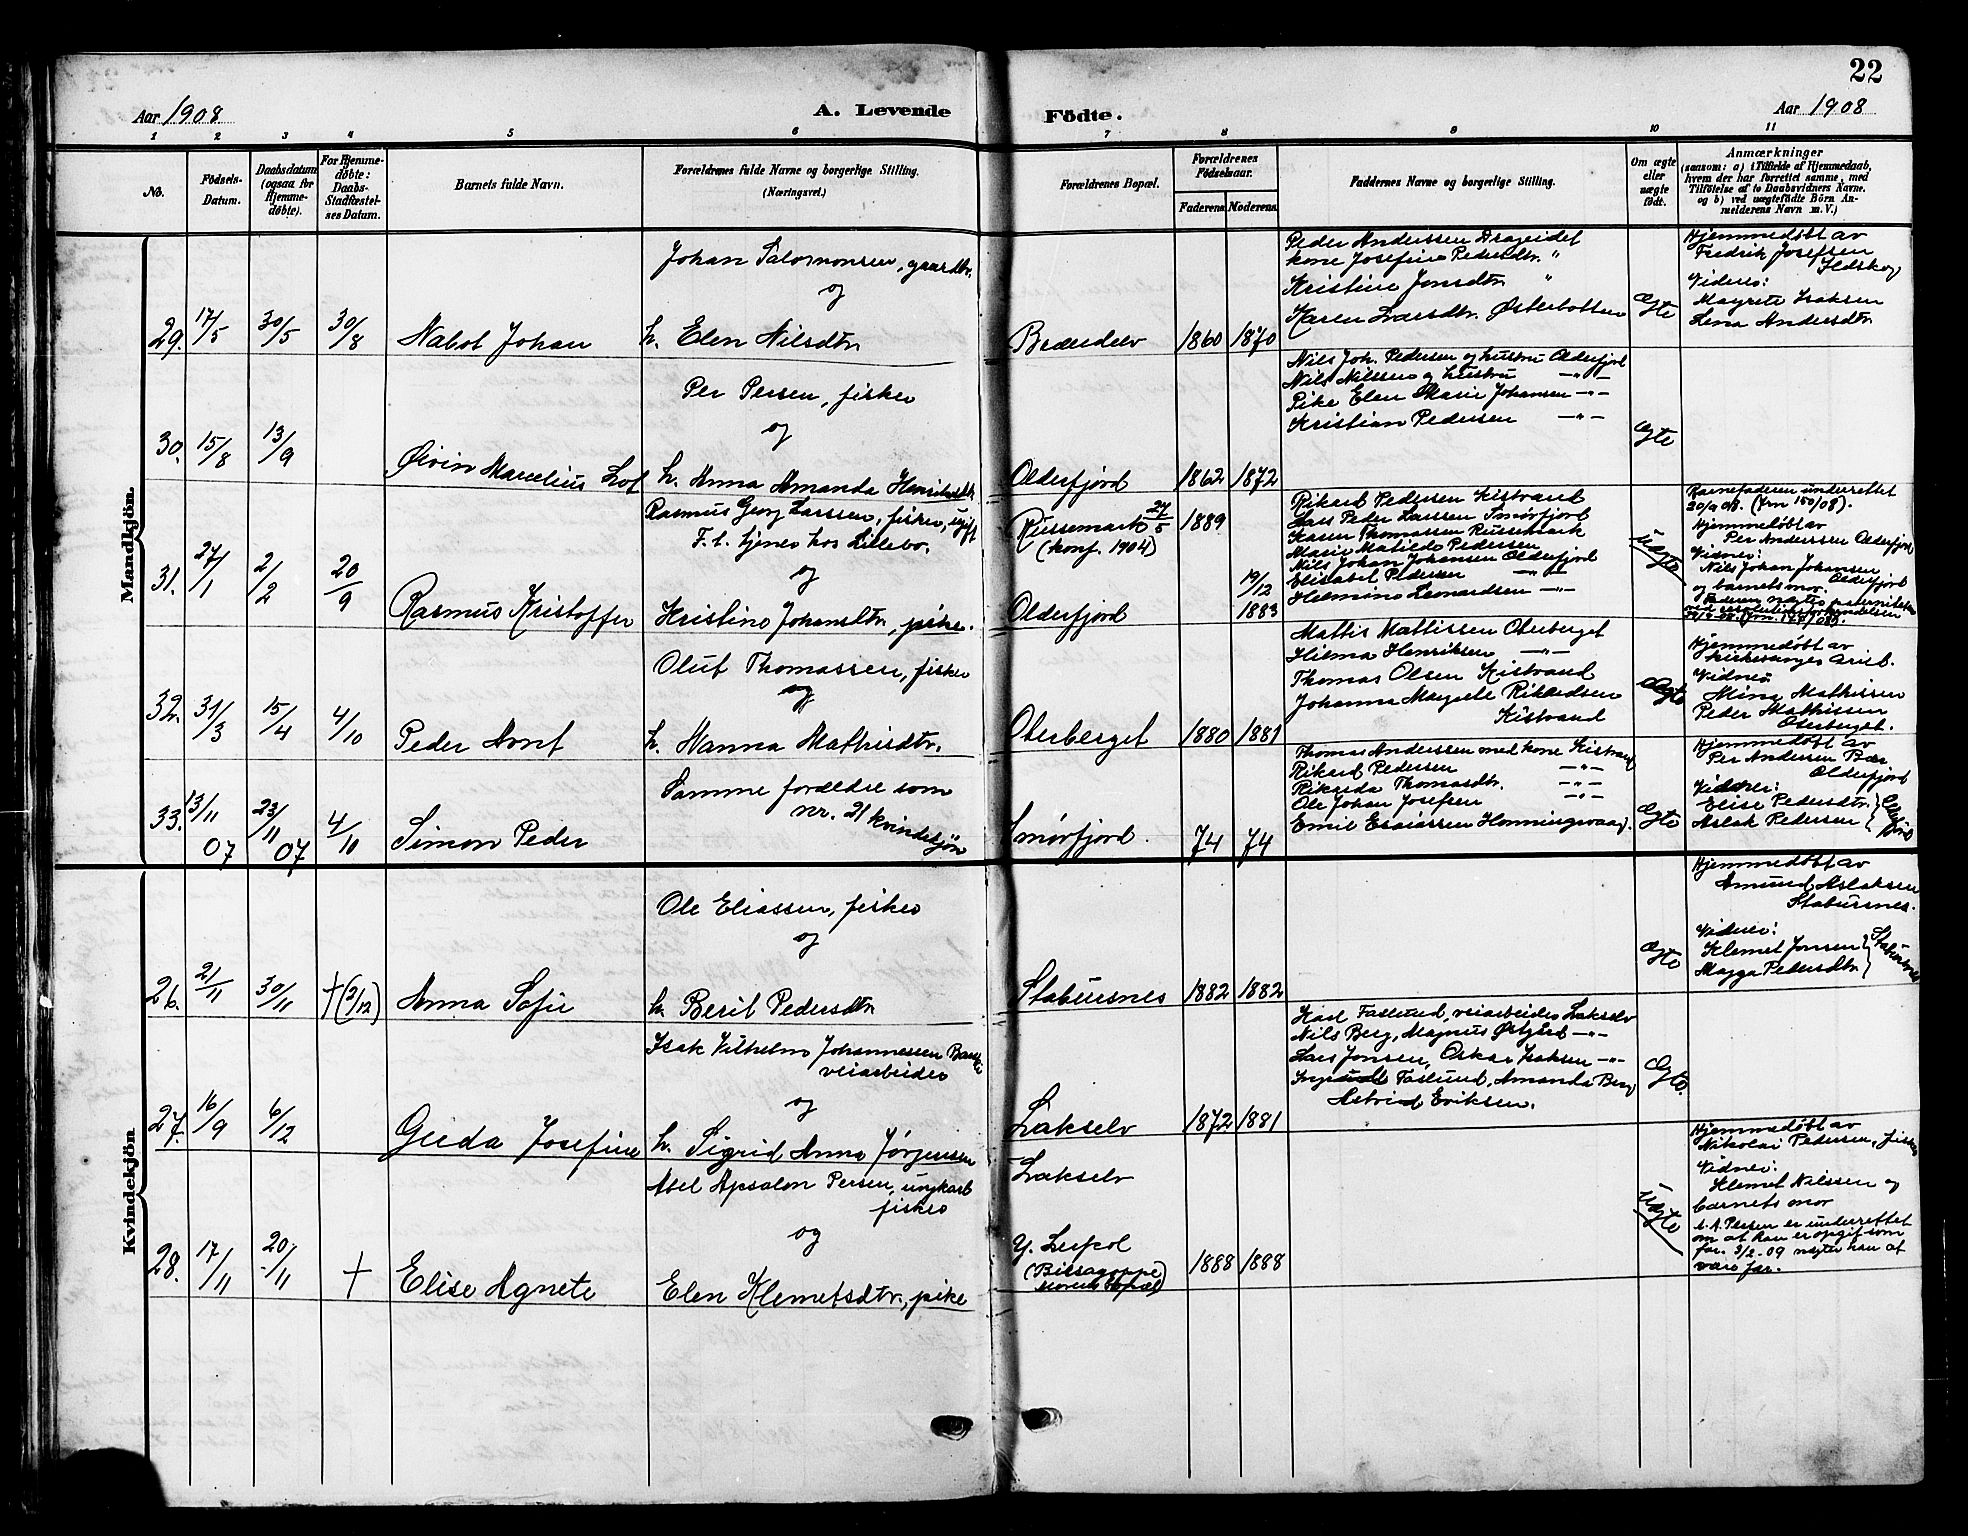 22
Aar 1908
A. Levende
Födte.
Aar 1908
1 2 3 4 5 6 7 8 9 10 11
No.
Födsels-
Datum.
Daabsdatum
(ogsaa for
Hjemme-
døbte).
For Hjemme-
døbte:
Daabs-
Stadfæstel-
ses Datum.
Barnets fulde Navn.
Forældrenes fulde Navne og borgerlige Stilling.
(Næringsvei.)
Forældrenes Bopæl.
Forældrenes
Fødselsaar.
Faderens Moderens
Faddernes Navne og borgerlige Stilling.
Om ægte
eller
uægte
født.
Anmærkninger
(saasom: a) i Tilfælde af Hjemmedaab,
hvem der har forrettet samme, med
Tilföielse af to Daabsvidners Navne.
og b) ved uægtefødte Börn An-
melderens Navn m. V.)
Mandkjön.
29. 17/5 30/5 30/8 Nabot Johan
Johan Salomonsen, gaardbr.
og
h. Elen Nilsdtr
Brændelv 1860 1870
Peder Anderssen Drageidet
kone Josefine Pedersdtr. "
Kristine Jonsdtr "
Karen Larsdtr. Østerbotten
Ægte
Hjemmedøbt av
Fredrik Josefsen
Ildskog
Vidner:
Magrete Isaksen
Lena Andersdtr
30. 15/8 13/9 Øivin Marcelius Lof
Per Persen, fisker
og
h. Anna Amanda Henriksdtr
Olderfjord 1862 1872
Nils Joh. Pedersen og hustru Olderfjord
Nils Nilssen og hustru —"—
Pike Elen Marie Johansen —"—
Kristian Pedersen —"—
Ægte
31. 27/1 2/2 20/9 Rasmus Kristoffer
Rasmus Georg Larssen, fisker, ugift
F. t. tjener hos Lillebo.
og
Kristine Johansdtr, pike.
Russemark 27/5 1889
(konf. 1904)
Olderfjord 19/12 1883
Rikard Pedersen Kistrand
Lars Peder Larssen Smørfjord
Karen Thomassen Russemark
Marie Matilde Pedersen
Nils Johan Johansen Olderfjord
Elisabet Pedersen —"—
Helmine Leonardsen —"—
Uægte
Barnefaderen underrettet
20/9 08. (Jrn 150/08).
Hjemmedøbt av
Per Anderssen Olderfjord
Vidner:
Nils Johan Johansen
Olderfjord
og barnets mor.
Faderen nægter paterniteten
32. 31/3 15/4 4/10 Peder Arnt
Oluf Thomassen, fisker
og
h. Hanna Mathisdtr.
Oterberget 1880 1881
Mattis Mattissen Oterberget
Hilma Henriksen —"—
Thomas Olsen Kistrand
Johanna Magrete Rikardsen
Kistrand
Ægte
Hjemmedøbt av
kirkesanger
Vidner
Mina Mathissen
Peder Mathissen
Oterberget.
33. 13/11 07 23/11 07 4/10 Simon Peder
Samme forældre som
nr. 21 kvindekjön
Smørfjord. 74 74
Thomas Anderssen med kone Kistrand
Rikard Pedersen —"—
Rikarda Thomasdtr. —"—
Ole Johan Josefsen
Emil Esaiassen Honningsvaag.
Ægte
Hjemmedøbt av
Per Andersen Bær
Olderfjord
Vidner:
Elise Pedersdtr.
Aslak Pedersen
Kvindekjön
26. 21/11 30/11 †(3/12) Anna Sofie
Ole Eliassen, fisker
og
h. Berit Pedersdtr
Stabursnes 1882 1882
Ægte
Hjemmedøbt av
Amund Aslaksen
Stabursnes.
Vidner:
Klemet Jonsen
Magga Pedersdtr
Stabursnes
27. 16/9 6/12 Gerda Josefine
Isak Vilhelm Johannessen
veiarbeider
og
h. Sigrid Anna Jørgensen
Lakselv 1872 1881
Karl Faslund, veiarbeider Lakselv
Nils Berg, Magnus Østgård —"—
Lars Jonsen, Oskar Isaksen —"—
Faslund, Amanda Berg
Astrid Eriksen.
Ægte.
28. 17/11 20/11 † Elise Agnete
Abel Apsalon Persen, ungkarl
fisker
og
Elen Klemetsdtr., pike
Lakselv
Y. Leirpol
(Bissagoppe
morens bopæl)
1888 1888
Uægte
Hjemmedøbt av
Nikolai Pedersen, fisker
Vidner:
Klemet Nilssen og
barnets mor
A. A. Persen er underrettet
om at han er opgit som
far. 3/2-09 nægter han at
være far.